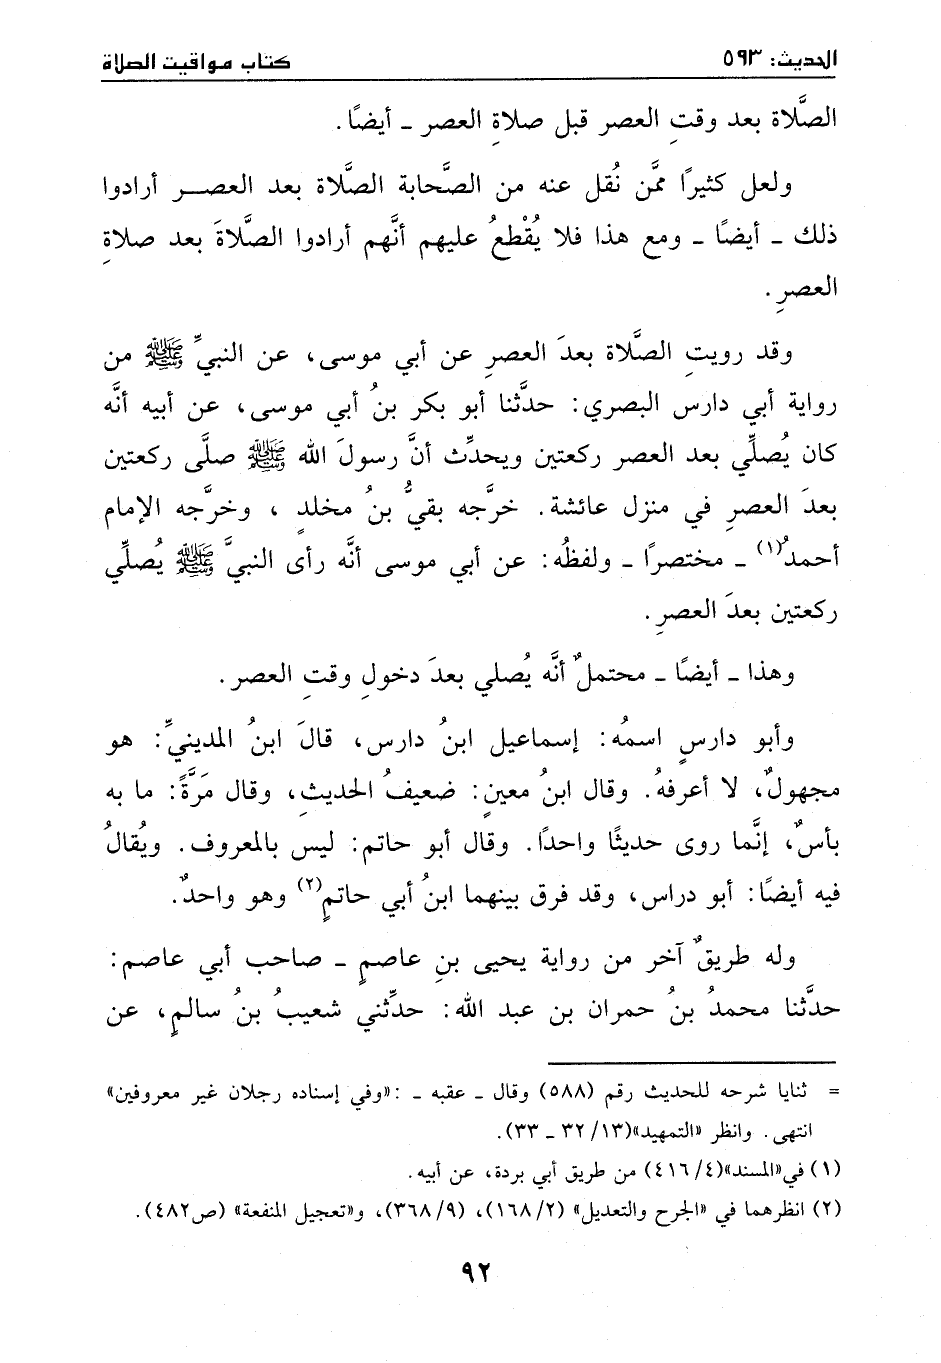 الحديث: ٥٩٣
كتاب مواقيت الصلاة
الصَّلاة بعد وقتِ العصر قبل صلاةِ العصر ـ أيضًا.
ولعل كثيرًا ممَّن نُقل عنه من الصَّحابة الصَّلاة بعد العصر أرادوا
ذلك ـ أيضًا ـ ومع هذا فلا يُقْطعُ عليهم أنَّهم أرادوا الصَّلاةَ بعد صلاةِ
العصرِ.
وقد رويتِ الصَّلاة بعدَ العصرِ عن أبي موسى، عن النبيِّ ﷺ من
رواية أبي دارس البصري: حدثَّنا أبو بكر بنُ أبي موسى، عن أبيه أنَّه
كان يُصلِّي بعد العصر ركعتين ويحدِّث أنَّ رسولَ الله ﷺ صلَّى ركعتين
بعدَ العصرِ في منزل عائشة. خرَّجه بقيُّ بنُ مخلدٍ ، وخرَّجه الإمام
أحمدُ(١) ـ مختصرًا ـ ولفظُه: عن أبي موسى أنَّه رأى النبيَّ ﷺ يُصلِّي
ركعتين بعدَ العصرِ.
وهذا ـ أيضًا ـ محتملٌ أنَّه يُصلي بعدَ دخولِ وقتِ العصر.
وأبو دارسٍ اسمُه: إسماعيل ابنُ دارس، قالَ ابنُ المدينيِّ: هو
مجهولٌ، لا أعرفهُ. وقال ابنُ معينٍ: ضعيفُ الحديثِ، وقال مَرَّةً: ما به
بأسٌ، إنَّما روى حديثًا واحدًا. وقال أبو حاتم: ليس بالمعروف. ويُقالُ
فيه أيضًا: أبو دراس، وقد فرق بينهما ابنُ أبي حاتمٍ(٢) وهو واحدٌ.
وله طريقٌ آخر من رواية يحيى بنِ عاصمٍ ـ صاحب أبي عاصم:
حدَّثنا محمدُ بنُ حمران بن عبد الله: حدِّثني شعيبُ بنُ سالمٍ، عن
= ثنايا شرحه للحديث رقم (٥٨٨) وقال ـ عقبه ـ :«وفي إسناده رجلان غير معروفين»
انتهى. وانظر «التمهيد»(١٣/ ٣٢ ـ ٣٣).
(١) في«المسند»(٤/ ٤١٦) من طريق أبي بردة، عن أبيه.
(٢) انظرهما في «الجرح والتعديل» (٢/ ١٦٨)، (٩/ ٣٦٨)، و«تعجيل المنفعة» (ص٤٨٢).
٩٢